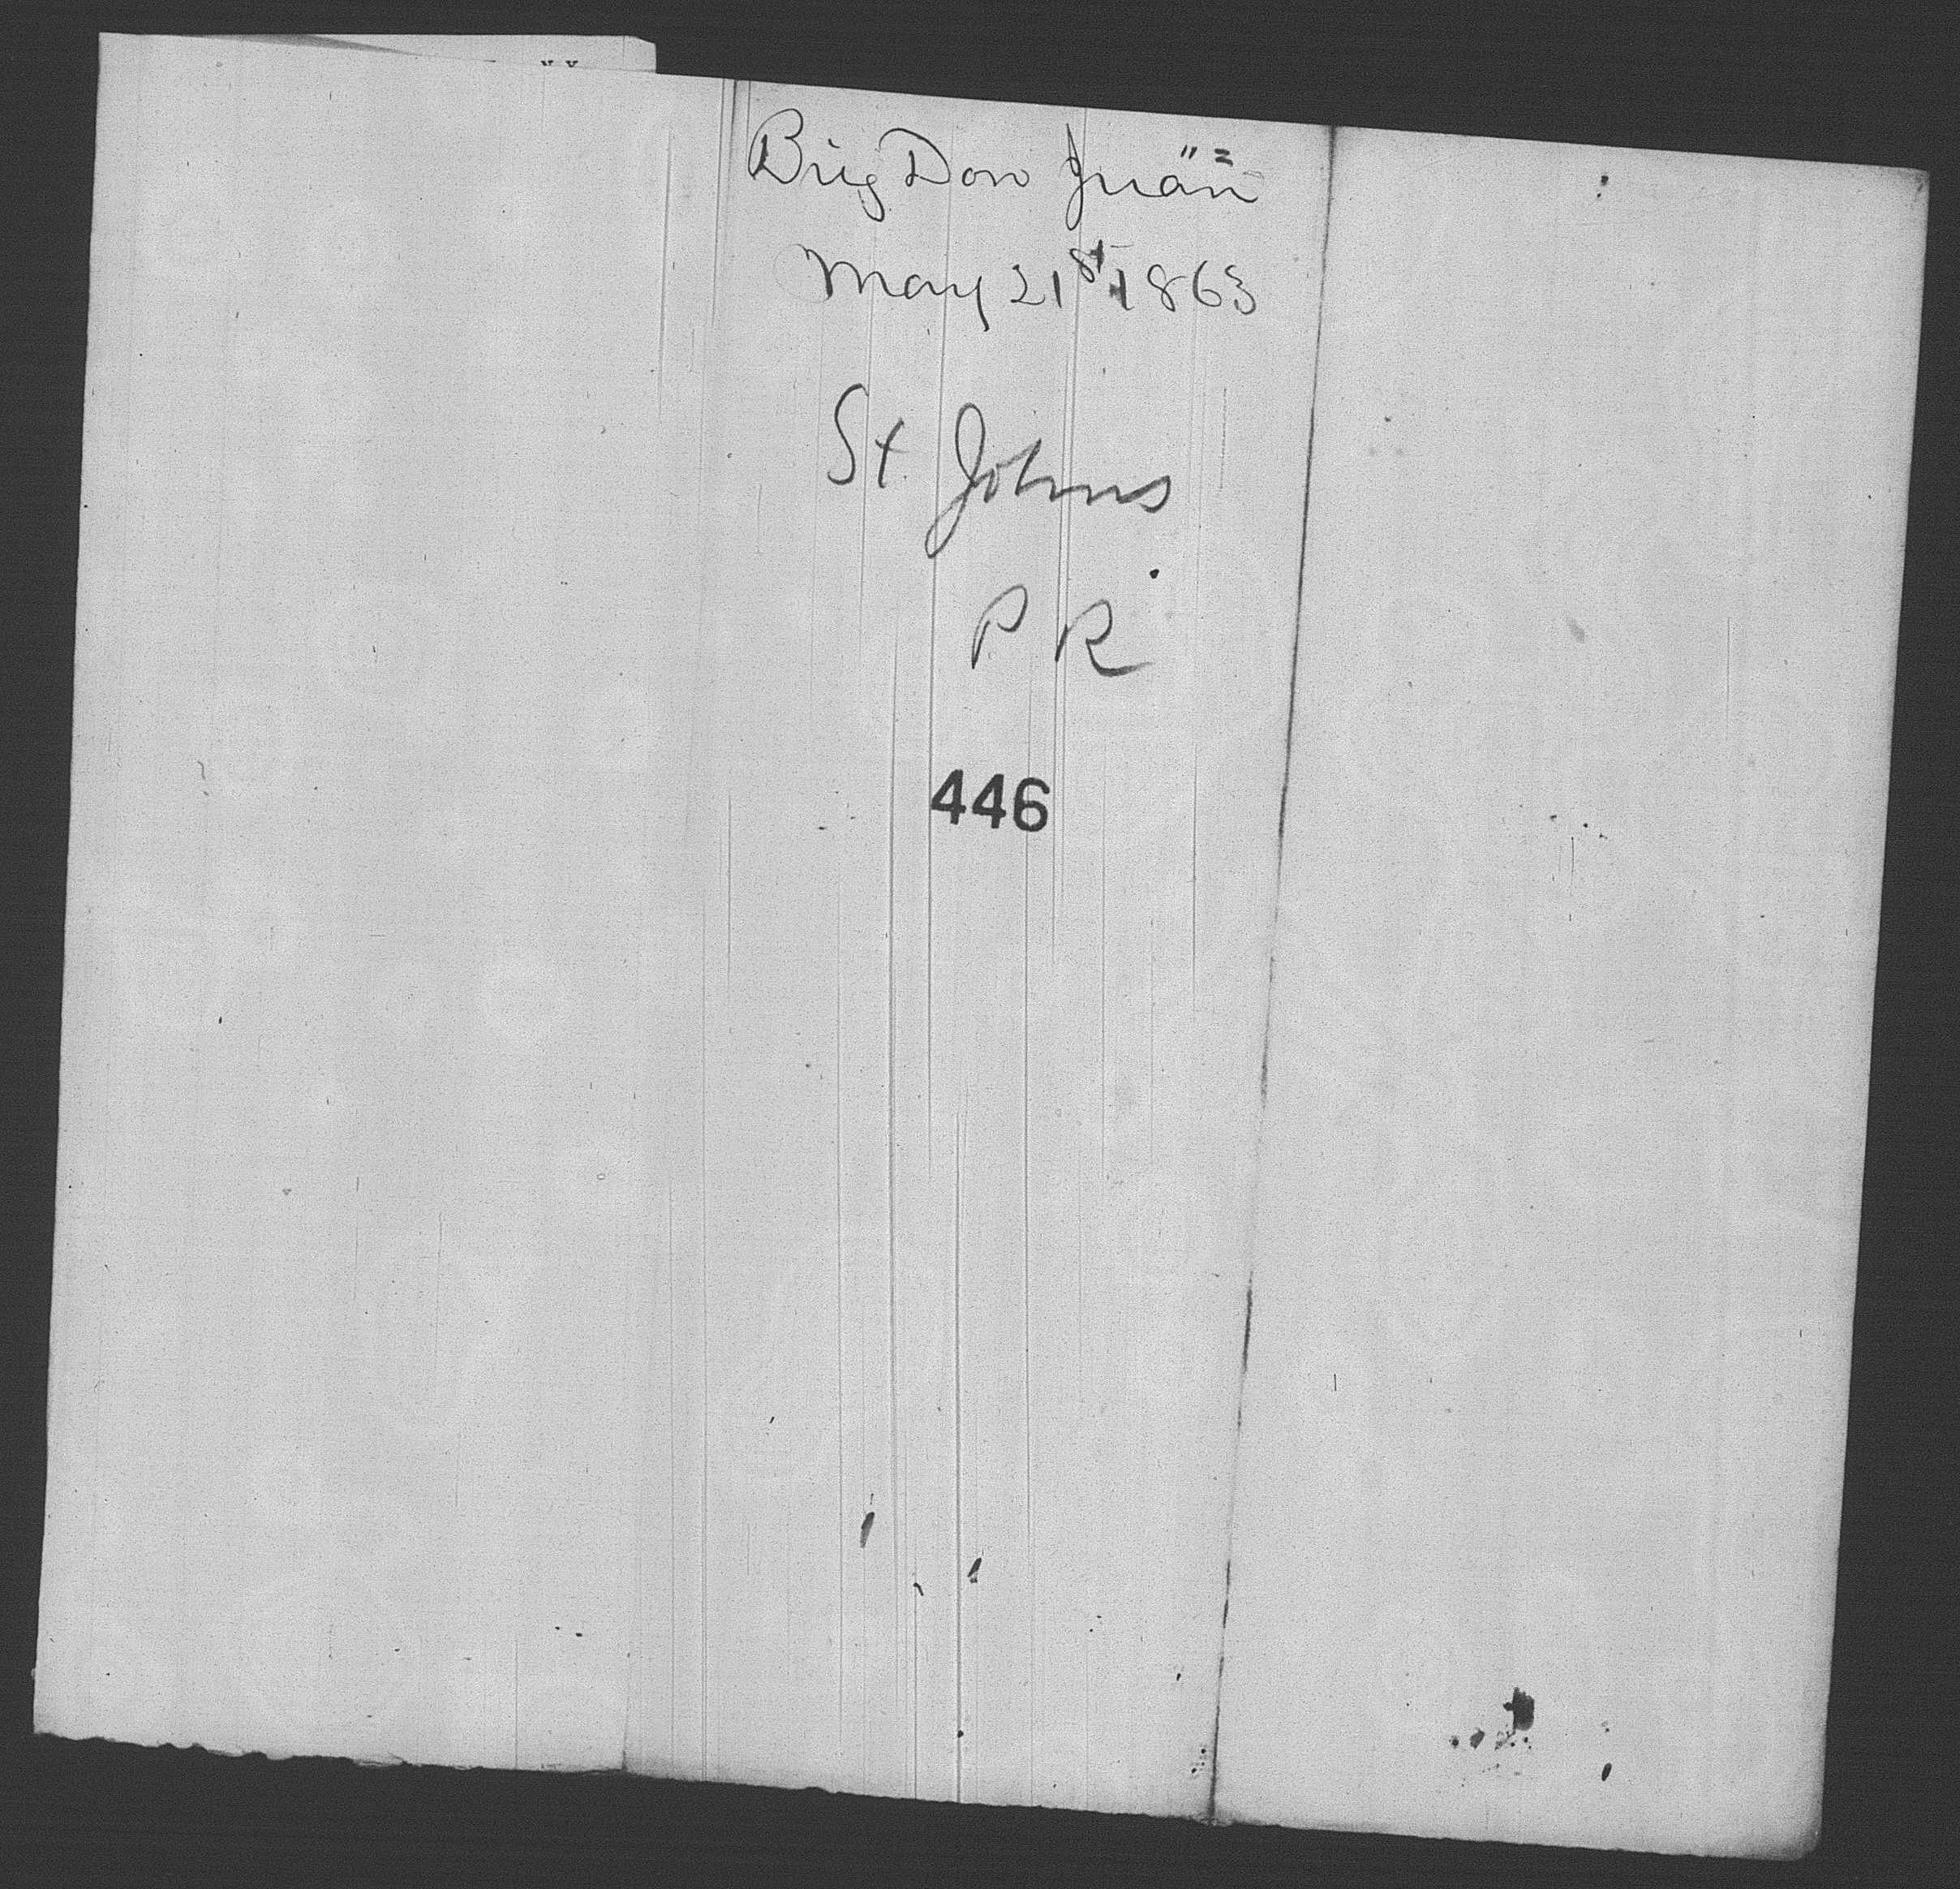 Brig Don Juan
May 21st 1863
St. Johns
P R
446